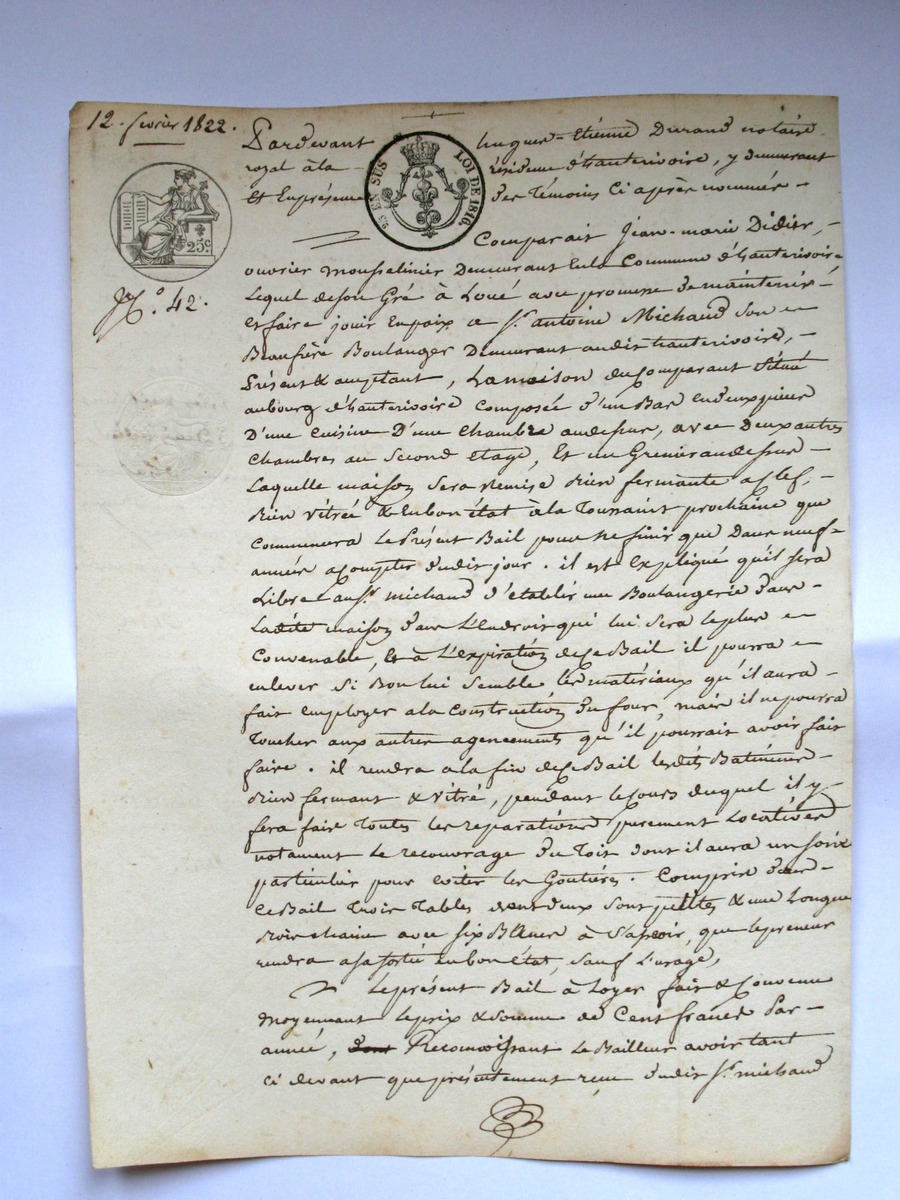 12. fevrier 1822.
Pardevant hugues-Etienne Durand notaire
royal à la résidence d'hauterivoire, y demeurant
Et En présence des Témoins Ci après nommés -
25 EN SUS LOI DE 1816.
25c.
Nº. 42.
Comparait Jean-marie Didier, -
ouvrier mousselinier Demeurant En la Commune d'hauterivoire
Lequel de son Gré à Loué avec promesse de maintenir &
Et faire jouir En paix a Sr. antoine Michaud Son -
Beaufrère Boulanger Demeurant audit hauterivoire, -
Présent & acceptant, La maison du Comparant Situé
au bourg d'hauterivoire Composée d'un Bas en deux pièces
D'une Cuisine D'une Chambre au dessus, avec Deux autres
Chambres au Second etage, Et un Grenier au dessus -
Laquelle maison Sera remise bien fermante a clef, -
bien vitrée & En bon état à la Toussaint prochaine que
Commencera le Présent Bail pour ne finir que Dans neuf -
années a Compter dudit jour. il est Expliqué qu'il Sera
Libre au Sr. michaud d'établir une Boulangerie dans -
Ladite maison dans L'Endroit qui lui Sera le plus -
Convenable, Et à L'expiration de Ce Bail il pourra -
enlever Si Bon lui Semble les matériaux qu'il aura -
fait employer a la Construction du four, mais il ne pourra
Toucher aux autres agencements qu'il pourrait avoir fait
faire. il rendra a la fin de Ce Bail lesdits Batiments -
bien fermant & vitré, pendant le Cours duquel il y -
fera faire Toutes les reparations purement Locatives
notament Le recouvrage du Toit dont il aura un Soin
particulier pour eviter les Goutières. Compris dans -
Ce Bail Trois Tables dont deux Sont petites & une Longue
avec Six Bancs à S'asseoir, que le preneur
rendra a Sa Sortie en bon état, Sauf L'usage,
Le présent Bail à Loyer fait & Convenu
moyennant le prix & Somme de Cent francs Par -
année, dont Reconnoissant Le Bailleur avoir tant
Ci devant que présentement reçu dudit Sr. michaud